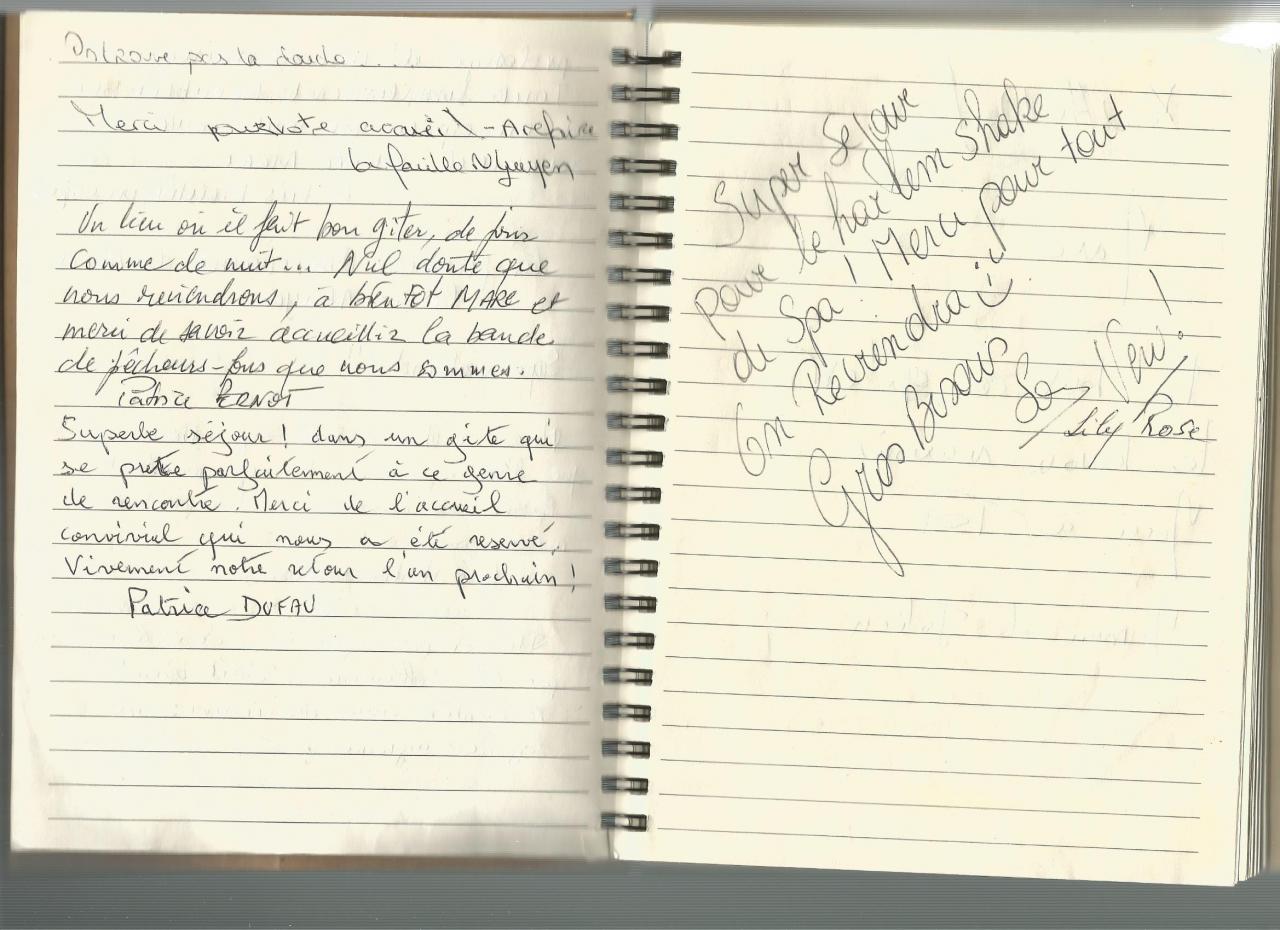 On trouve pas la douche ...
Merci pour votre accueil - A refaire
la famille Nguyen
Un lieu où il fait bon gîter, de jour
comme de nuit... Nul doute que
nous reviendrons, à bientôt MARC et
merci de savoir accueillir la bande
de pêcheurs-fous que nous sommes.
Patrice
Superbe séjour ! dans un gîte qui
se prete parfaitement à ce genre
de rencontre. Merci de l'accueil
convivial qui nous a été reservé.
Vivement notre retour l'an prochain !
Patrice DUFAU
Super Sejour
pour le harlem Shake
de Spa ! Merci pour tout
On Reviendra
Gros Bisous
Lily Rose